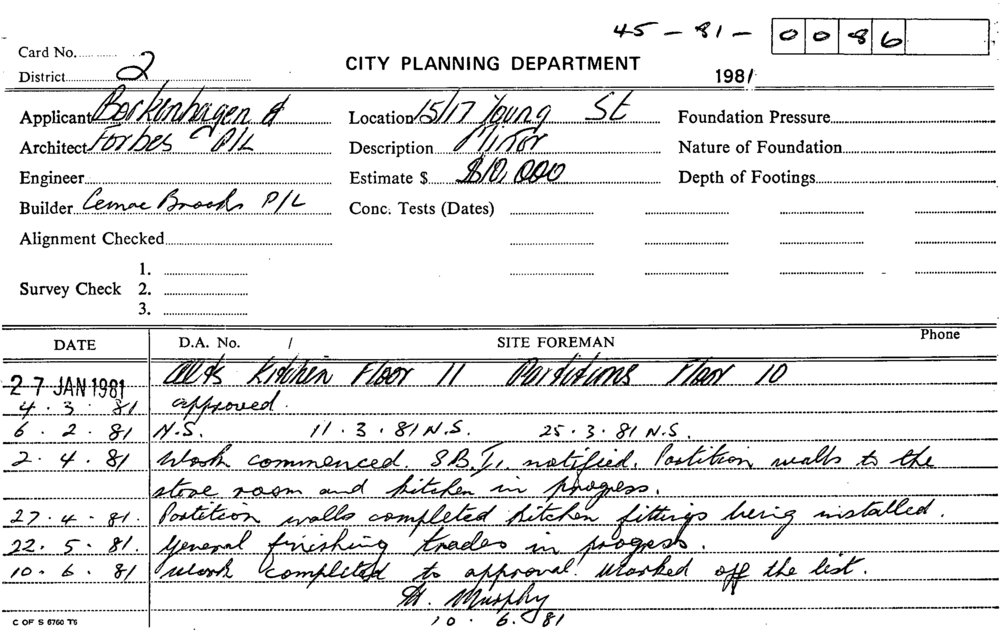 45 - 81 - 0086
Card No.
District 2
CITY PLANNING DEPARTMENT
1981
Applicant Borkenhagen &
Location 15/17 Young St
Foundation Pressure
Architect Forbes P/L
Description Minor
Nature of Foundation
Engineer
Estimate $ $10,000
Depth of Footings
Builder Cemac Brooks P/L
Conc. Tests (Dates)
Alignment Checked
1.
Survey Check 2.
3.
DATE D.A. No. / SITE FOREMAN Phone
27 JAN 1981 Alts Kitchen Floor 11 Partitions Floor 10
4.3.81 approved.
6.2.81 N.S. 11.3.81 N.S. 25.3.81 N.S.
2.4.81 Work commenced. S.B.I. notified. Partition walls to the
store room and kitchen in progress.
27.4.81. Partition walls completed kitchen fittings being installed.
22.5.81. General finishing trades in progress.
10.6.81 Work completed to approval. Marked off the list.
Murphy
10.6.81
C OF S 6760 T6